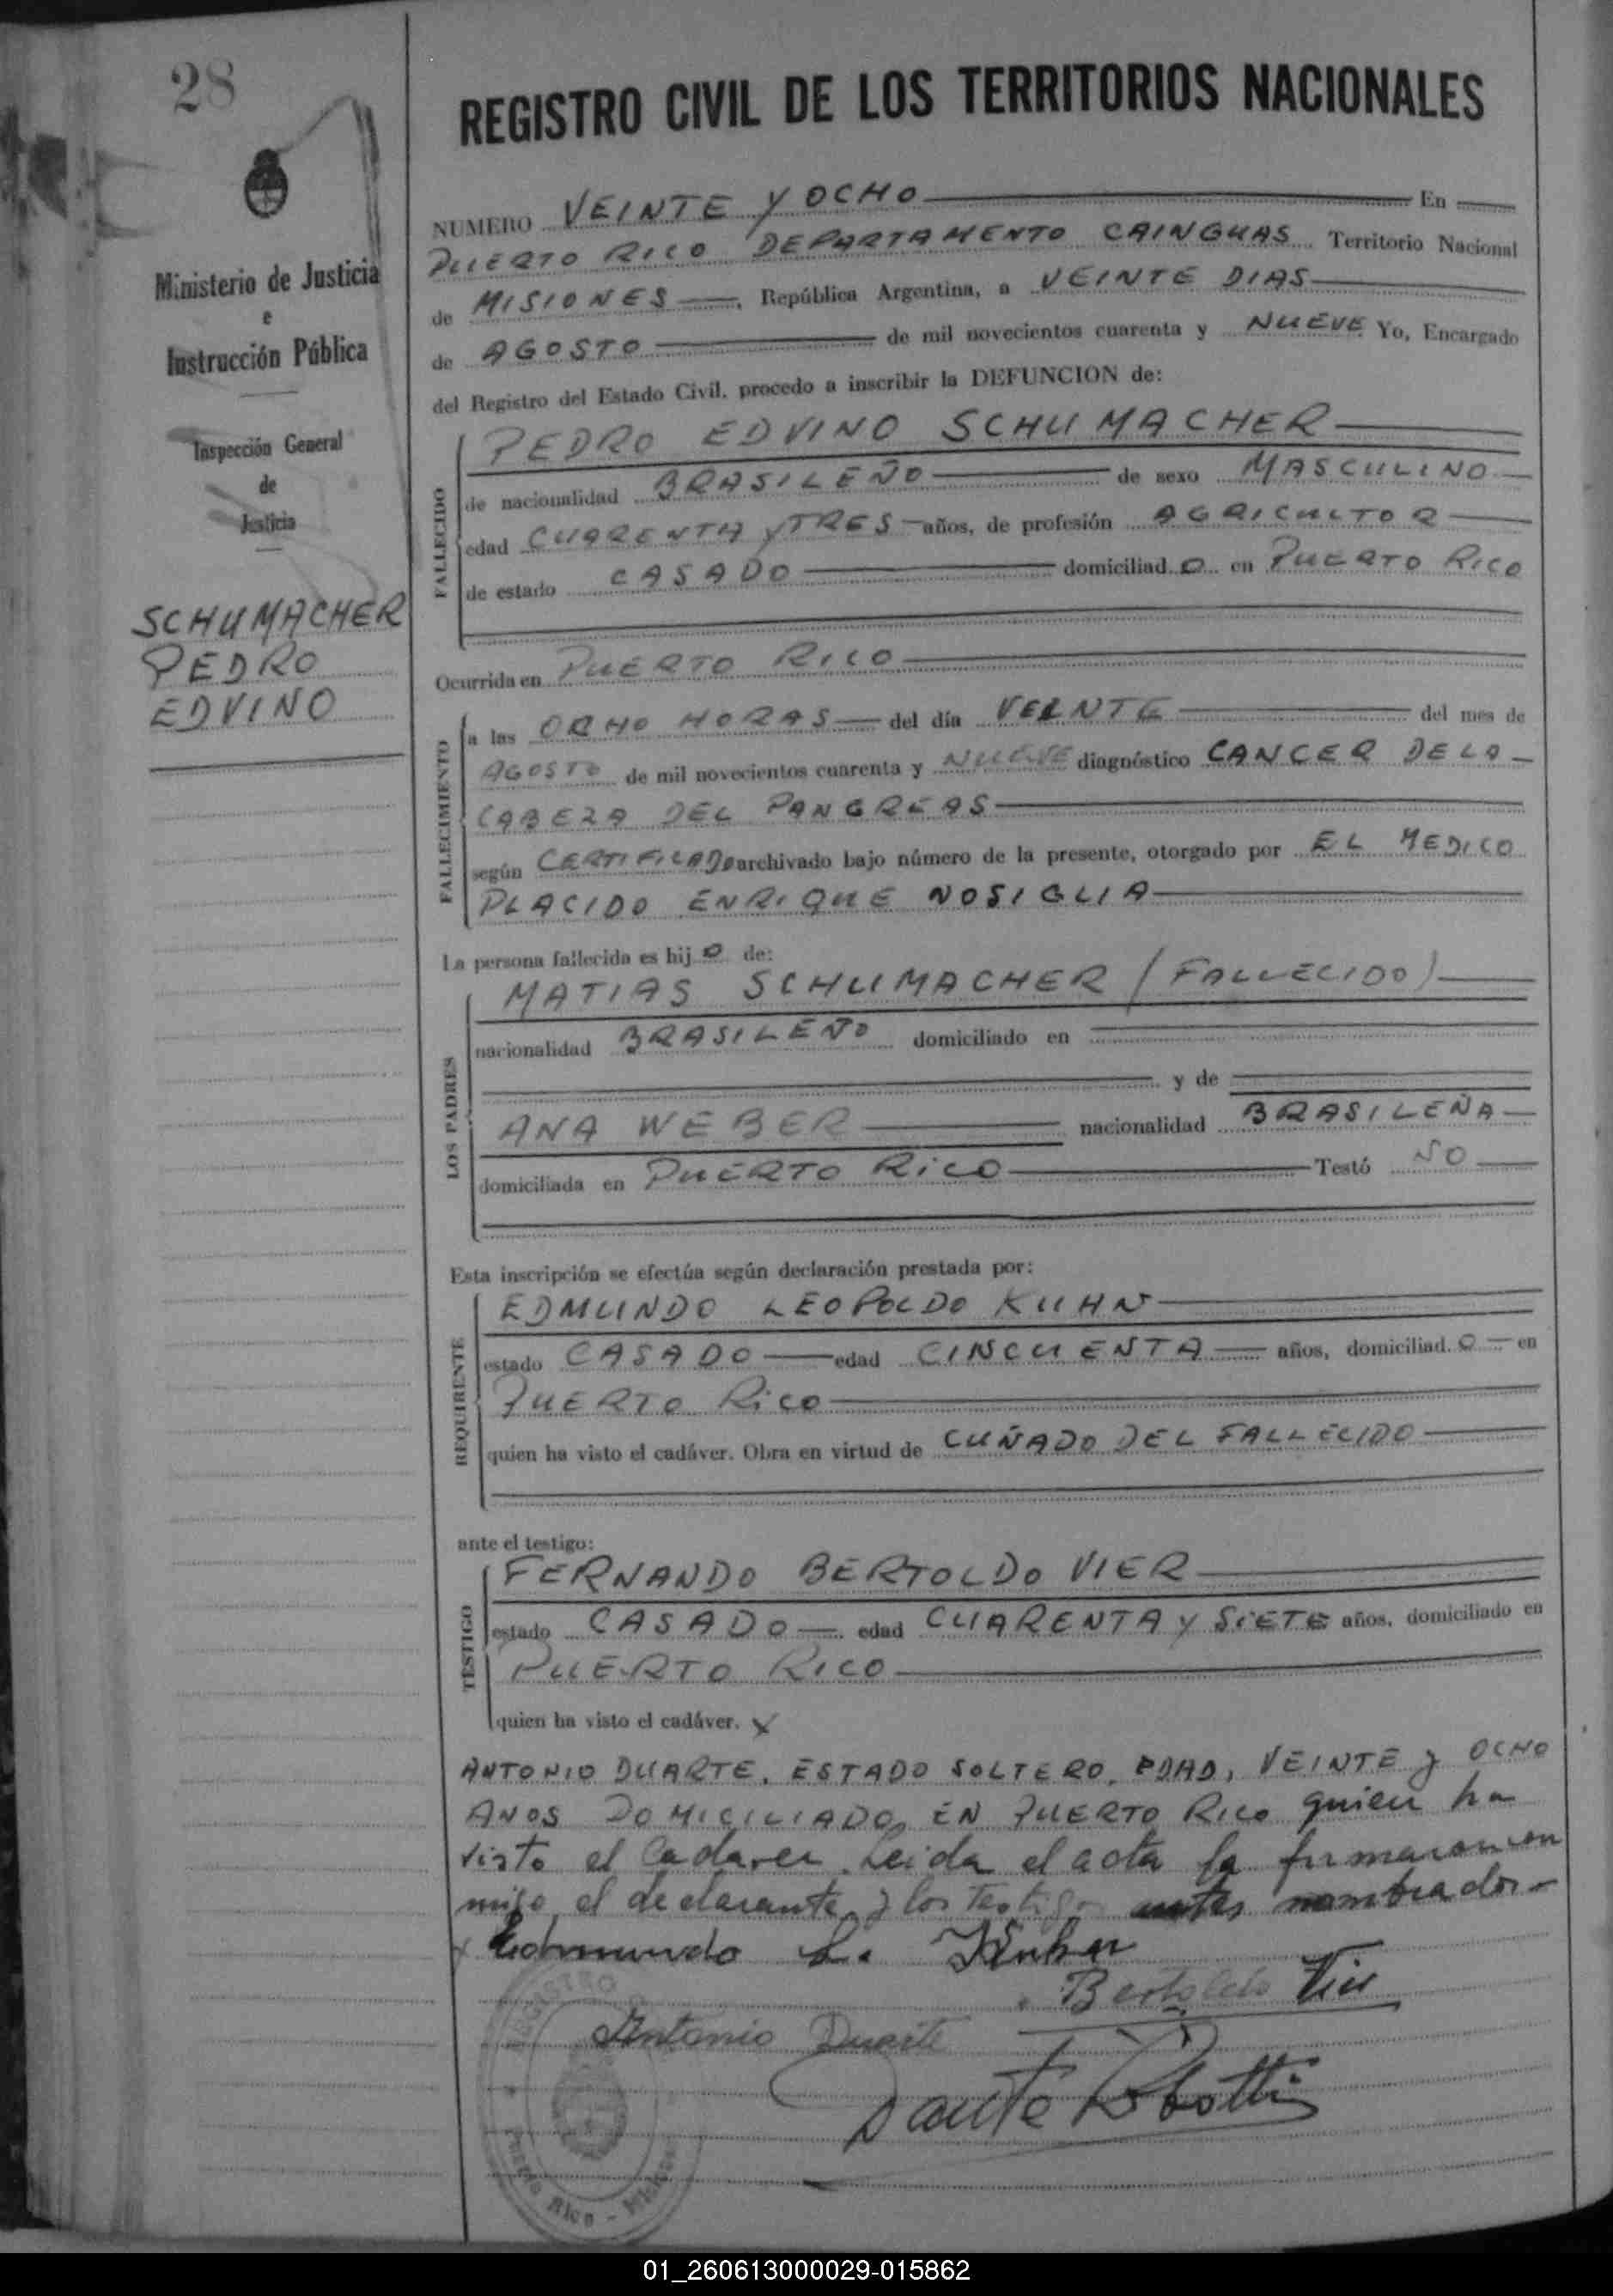 28
REGISTRO CIVIL DE LOS TERRITORIOS NACIONALES
Ministerio de Justicia
e
Instrucción Pública
Inspección General
de
Justicia
SCHUMACHER
PEDRO
EDVINO
NUMERO VEINTE Y OCHO En
PUERTO RICO DEPARTAMENTO CAINGUAS Territorio Nacional
de MISIONES, República Argentina, a VEINTE DIAS
de AGOSTO de mil novecientos cuarenta y NUEVE Yo, Encargado
del Registro del Estado Civil, procedo a inscribir la DEFUNCION de:
FALLECIDO
PEDRO EDVINO SCHUMACHER
de nacionalidad BRASILEÑO de sexo MASCULINO
edad CUARENTA Y TRES años, de profesión AGRICULTOR
de estado CASADO domiciliad o en PUERTO RICO
Ocurrida en PUERTO RICO
FALLECIMIENTO
a las OCHO HORAS del día VEINTE del mes de
AGOSTO de mil novecientos cuarenta y NUEVE diagnóstico CANCER DE LA
CABEZA DEL PANGREAS
según CERTIFICADO archivado bajo número de la presente, otorgado por EL MEDICO
PLACIDO ENRIQUE NOSIGLIA
La persona fallecida es hij o de:
LOS PADRES
MATIAS SCHUMACHER (FALLECIDO)
nacionalidad BRASILEÑO domiciliado en
y de
ANA WEBER nacionalidad BRASILEÑA
domiciliada en PUERTO RICO Testó NO
Esta inscripción se efectúa según declaración prestada por:
REQUIRENTE
EDMUNDO LEOPOLDO KUHN
estado CASADO edad CINCUENTA años, domiciliad o en
PUERTO RICO
quien ha visto el cadáver. Obra en virtud de CUÑADO DEL FALLECIDO
ante el testigo:
TESTIGO
FERNANDO BERTOLDO VIER
estado CASADO edad CUARENTA Y SIETE años, domiciliado en
PUERTO RICO
quien ha visto el cadáver. X
ANTONIO DUARTE, ESTADO SOLTERO, EDAD, VEINTE y OCHO
ANOS DOMICILIADO, EN PUERTO RICO quien ha
visto el Cadaver. Leida el acta la firmaron con
migo el declarante y los Testigos antes nombrados
x Edmundo L. Kuhn
Bertoldo Vier
Antonio Duarte
Dante
REGISTRO
Puerto Rico - Misiones
01_260613000029-015862